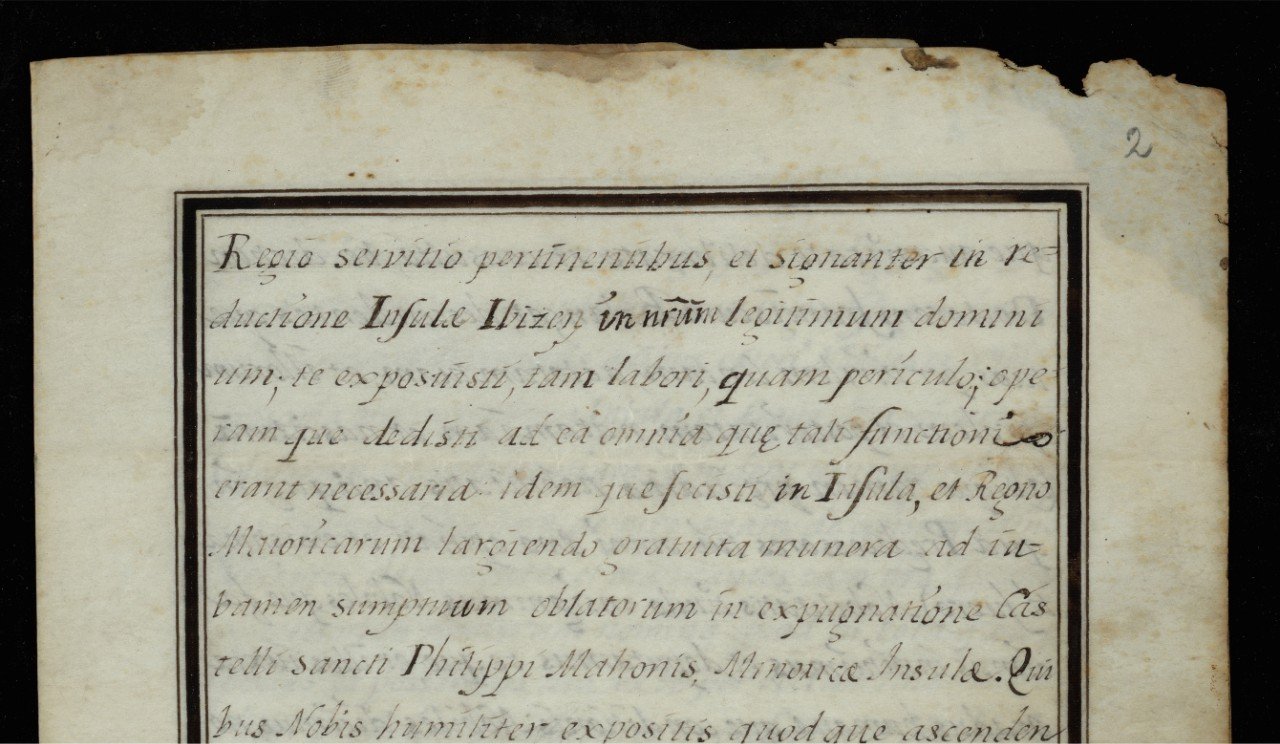 2
Regio servitio pertinentibus, et signanter in re=
ductione Insulæ Ibizen in nr̃um legitimum domini
um; te exposuisti, tam labori, quam periculo; ope=
ram que dedisti ad ea omnia quę tali functioni
erant necessaria idem que fecisti in Insula, et Regno
Maioricarum largiendo gratuita munera ad iu=
bamen sumptuum oblatorum in expugnatione Cas
telli sancti Philippi Mahonis, Minoricæ Insulæ. Qui
bus Nobis humiliter expositis quod que ascenden